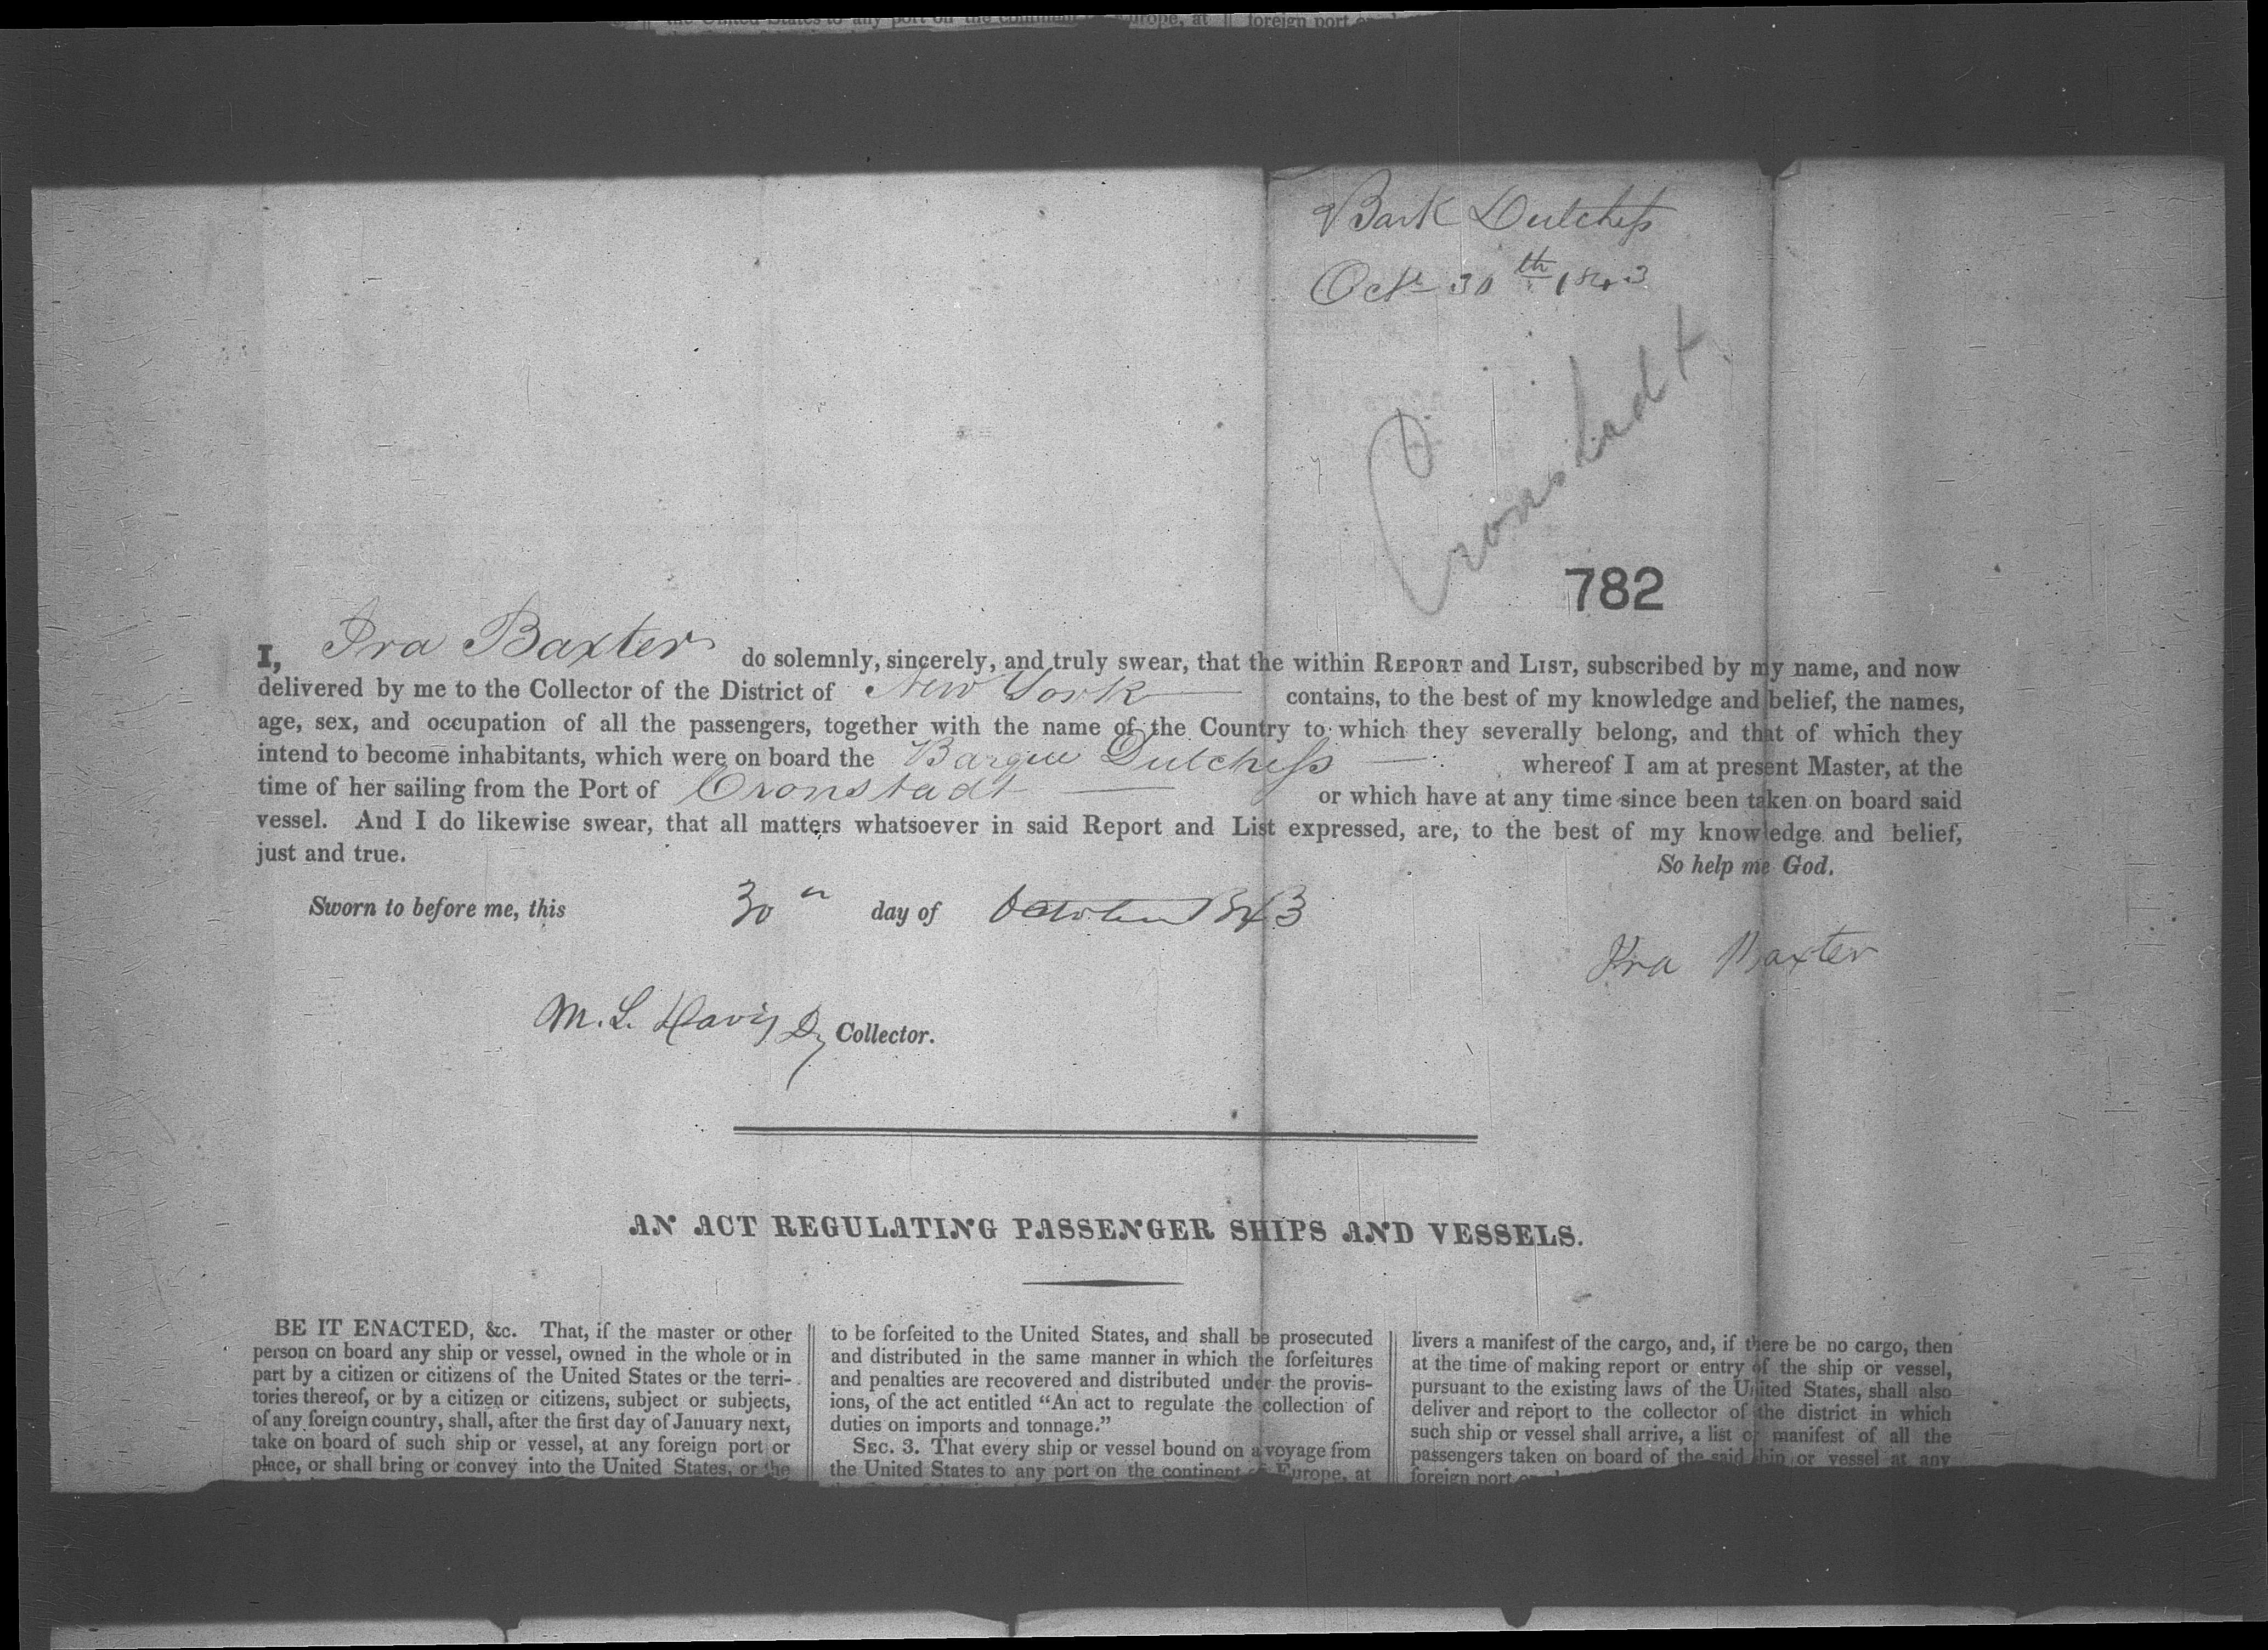 the United States to any port on the continent Europe, at
foreign port
Bark Dutchess
Octr 30th 1843
Cronstadt
782
I, Ira Baxter do solemnly, sincerely, and truly swear, that the within REPORT and LIST, subscribed by my name, and now
delivered by me to the Collector of the District of New York contains, to the best of my knowledge and belief, the names,
age, sex, and occupation of all the passengers, together with the name of the Country to which they severally belong, and that of which they
intend to become inhabitants, which were on board the Barque Dutchess whereof I am at present Master, at the
time of her sailing from the Port of Cronstadt or which have at any time since been taken on board said
vessel. And I do likewise swear, that all matters whatsoever in said Report and List expressed, are, to the best of my knowledge and belief,
just and true.
So help me God.
Sworn to before me, this 30th day of October 1843
Ira Baxter
M. L. Davis Dy Collector.
AN ACT REGULATING PASSENGER SHIPS AND VESSELS.
BE IT ENACTED, &c. That, if the master or other
person on board any ship or vessel, owned in the whole or in
part by a citizen or citizens of the United States or the terri-
tories thereof, or by a citizen or citizens, subject or subjects,
of any foreign country, shall, after the first day of January next,
take on board of such ship or vessel, at any foreign port or
place, or shall bring or convey into the United States, or the
to be forfeited to the United States, and shall be prosecuted
and distributed in the same manner in which the forfeitures
and penalties are recovered and distributed under the provis-
ions, of the act entitled "An act to regulate the collection of
duties on imports and tonnage."
SEC. 3. That every ship or vessel bound on a voyage from
the United States to any port on the continent of Europe, at
livers a manifest of the cargo, and, if there be no cargo, then
at the time of making report or entry of the ship or vessel,
pursuant to the existing laws of the United States, shall also
deliver and report to the collector of the district in which
such ship or vessel shall arrive, a list or manifest of all the
passengers taken on board of the said ship or vessel at any
foreign port